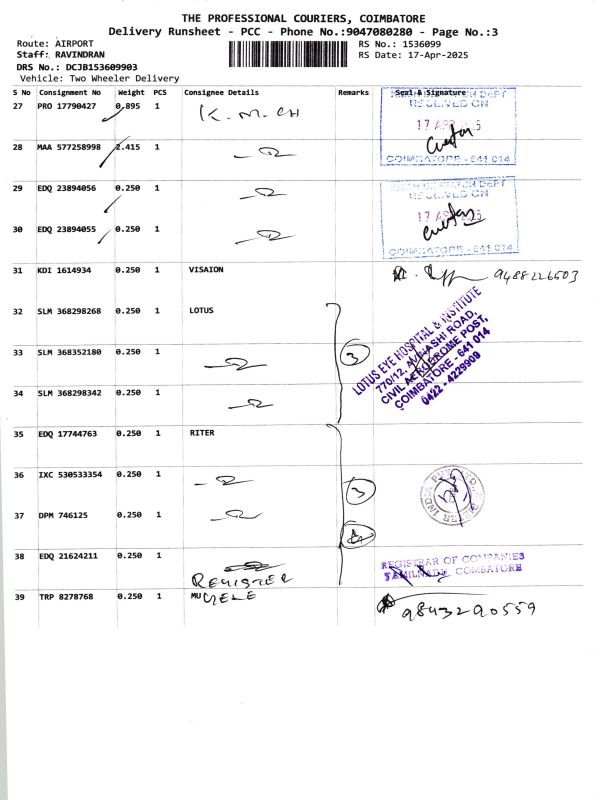 THE PROFESSIONAL COURIERS, COIMBATORE
Delivery Runsheet - PCC - Phone No.:9047080280 - Page No.:3
Route: AIRPORT
RS No.: 1536099
Staff: RAVINDRAN
RS Date: 17-Apr-2025
DRS No.: DCJB153609903
Vehicle: Two Wheeler Delivery
S No Consignment No Weight PCS Consignee Details Remarks Seal & Signature
27 PRO 17790427 0.895 1 K.M.CH
RECEIVED ON
17 APR
COIMBATORE - 641 014
28 MAA 577258998 2.415 1
29 EDQ 23894056 0.250 1
RECEIVED ON
17 APR
COIMBATORE - 641 014
30 EDQ 23894055 0.250 1
31 KDI 1614934 0.250 1 VISAION 9488226603
32 SLM 368298268 0.250 1 LOTUS
33 SLM 368352180 0.250 1 3
LOTUS EYE HOSPITAL & INSTITUTE
770/12, AVINASHI ROAD,
CIVIL AERODROME POST,
COIMBATORE - 641 014
0422 - 4229909
34 SLM 368298342 0.250 1
35 EDQ 17744763 0.250 1 RITER
36 IXC 530533354 0.250 1 3
37 DPM 746125 0.250 1
38 EDQ 21624211 0.250 1
REGISTER
REGISTRAR OF COMPANIES
TAMILNADU, COMBATORE
39 TRP 8278768 0.250 1 MU 9843290559